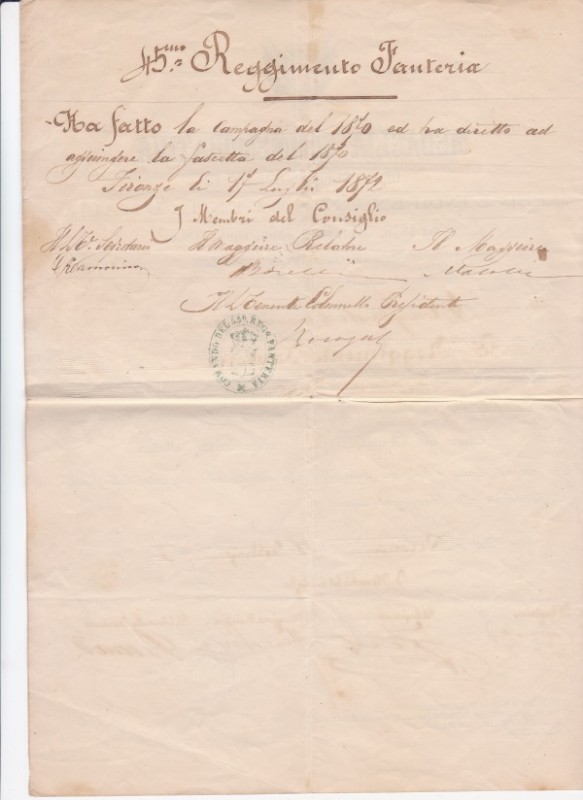 45.mo Reggimento Fanteria
Ha fatto la campagna del 1870 ed ha diritto ad
aggiungere la fascetta del 1870
Firenze li 17 Luglio 1872
I Membri del Consiglio
Il Maggiore Relatore Il Maggiore
Il L. Tenente Colonnello Presidente
COMANDO DEL 45º REGG. FANTERIA